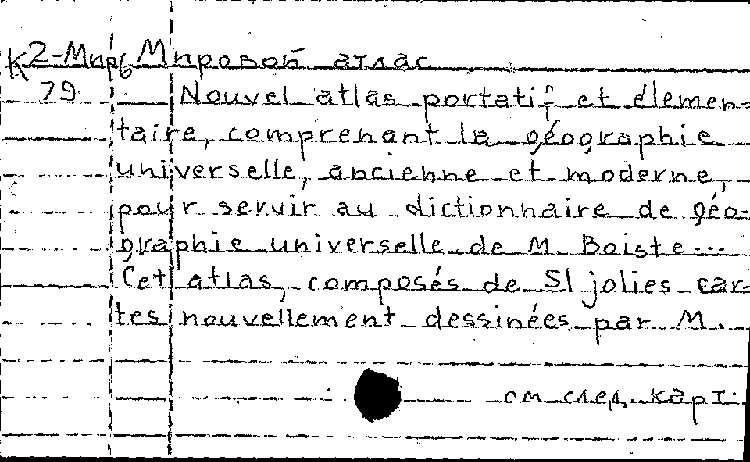 К2-Мир6 Мировой атлас
79 Nouvel atlas portatif et élemen-
taire, comprenant la géographie
universelle, ancienne et moderne,
pour servir au dictionnaire de géo-
graphie universelle de M. Boiste...
Cet atlas, composés de 51 jolies car-
tes nouvellement dessinées par M.
см. след. карт.